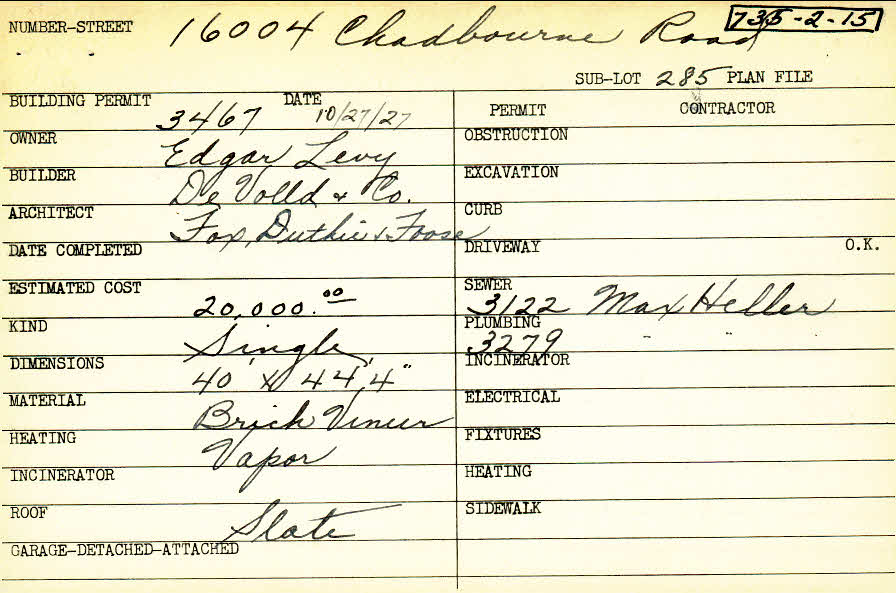 735-2-15
NUMBER-STREET 16004 Chadbourne Road
SUB-LOT 285 PLAN FILE
BUILDING PERMIT 3467 DATE 10/27/27
OWNER Edgar Levy
BUILDER De Volld & Co.
ARCHITECT Fox, Duthie & Foose
DATE COMPLETED
ESTIMATED COST 20,000.00
KIND Single
DIMENSIONS 40' x 44'4"
MATERIAL Brick Vineer
HEATING Vapor
INCINERATOR
ROOF Slate
GARAGE-DETACHED-ATTACHED
PERMIT CONTRACTOR
OBSTRUCTION
EXCAVATION
CURB
DRIVEWAY O.K.
SEWER 3122 Max Heller
PLUMBING 3279 " "
INCINERATOR
ELECTRICAL
FIXTURES
HEATING
SIDEWALK